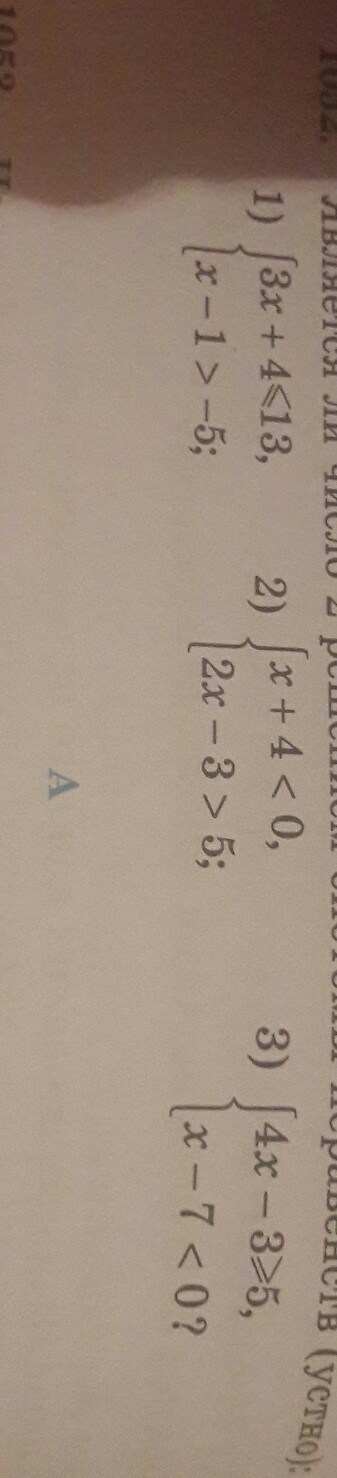 1052. Является ли число 2 решением системы неравенств (устно):
1) { 3x + 4 ⩽ 13, x − 1 > −5;
2) { x + 4 < 0, 2x − 3 > 5;
3) { 4x − 3 ⩾ 5, x − 7 < 0?
А
1053.